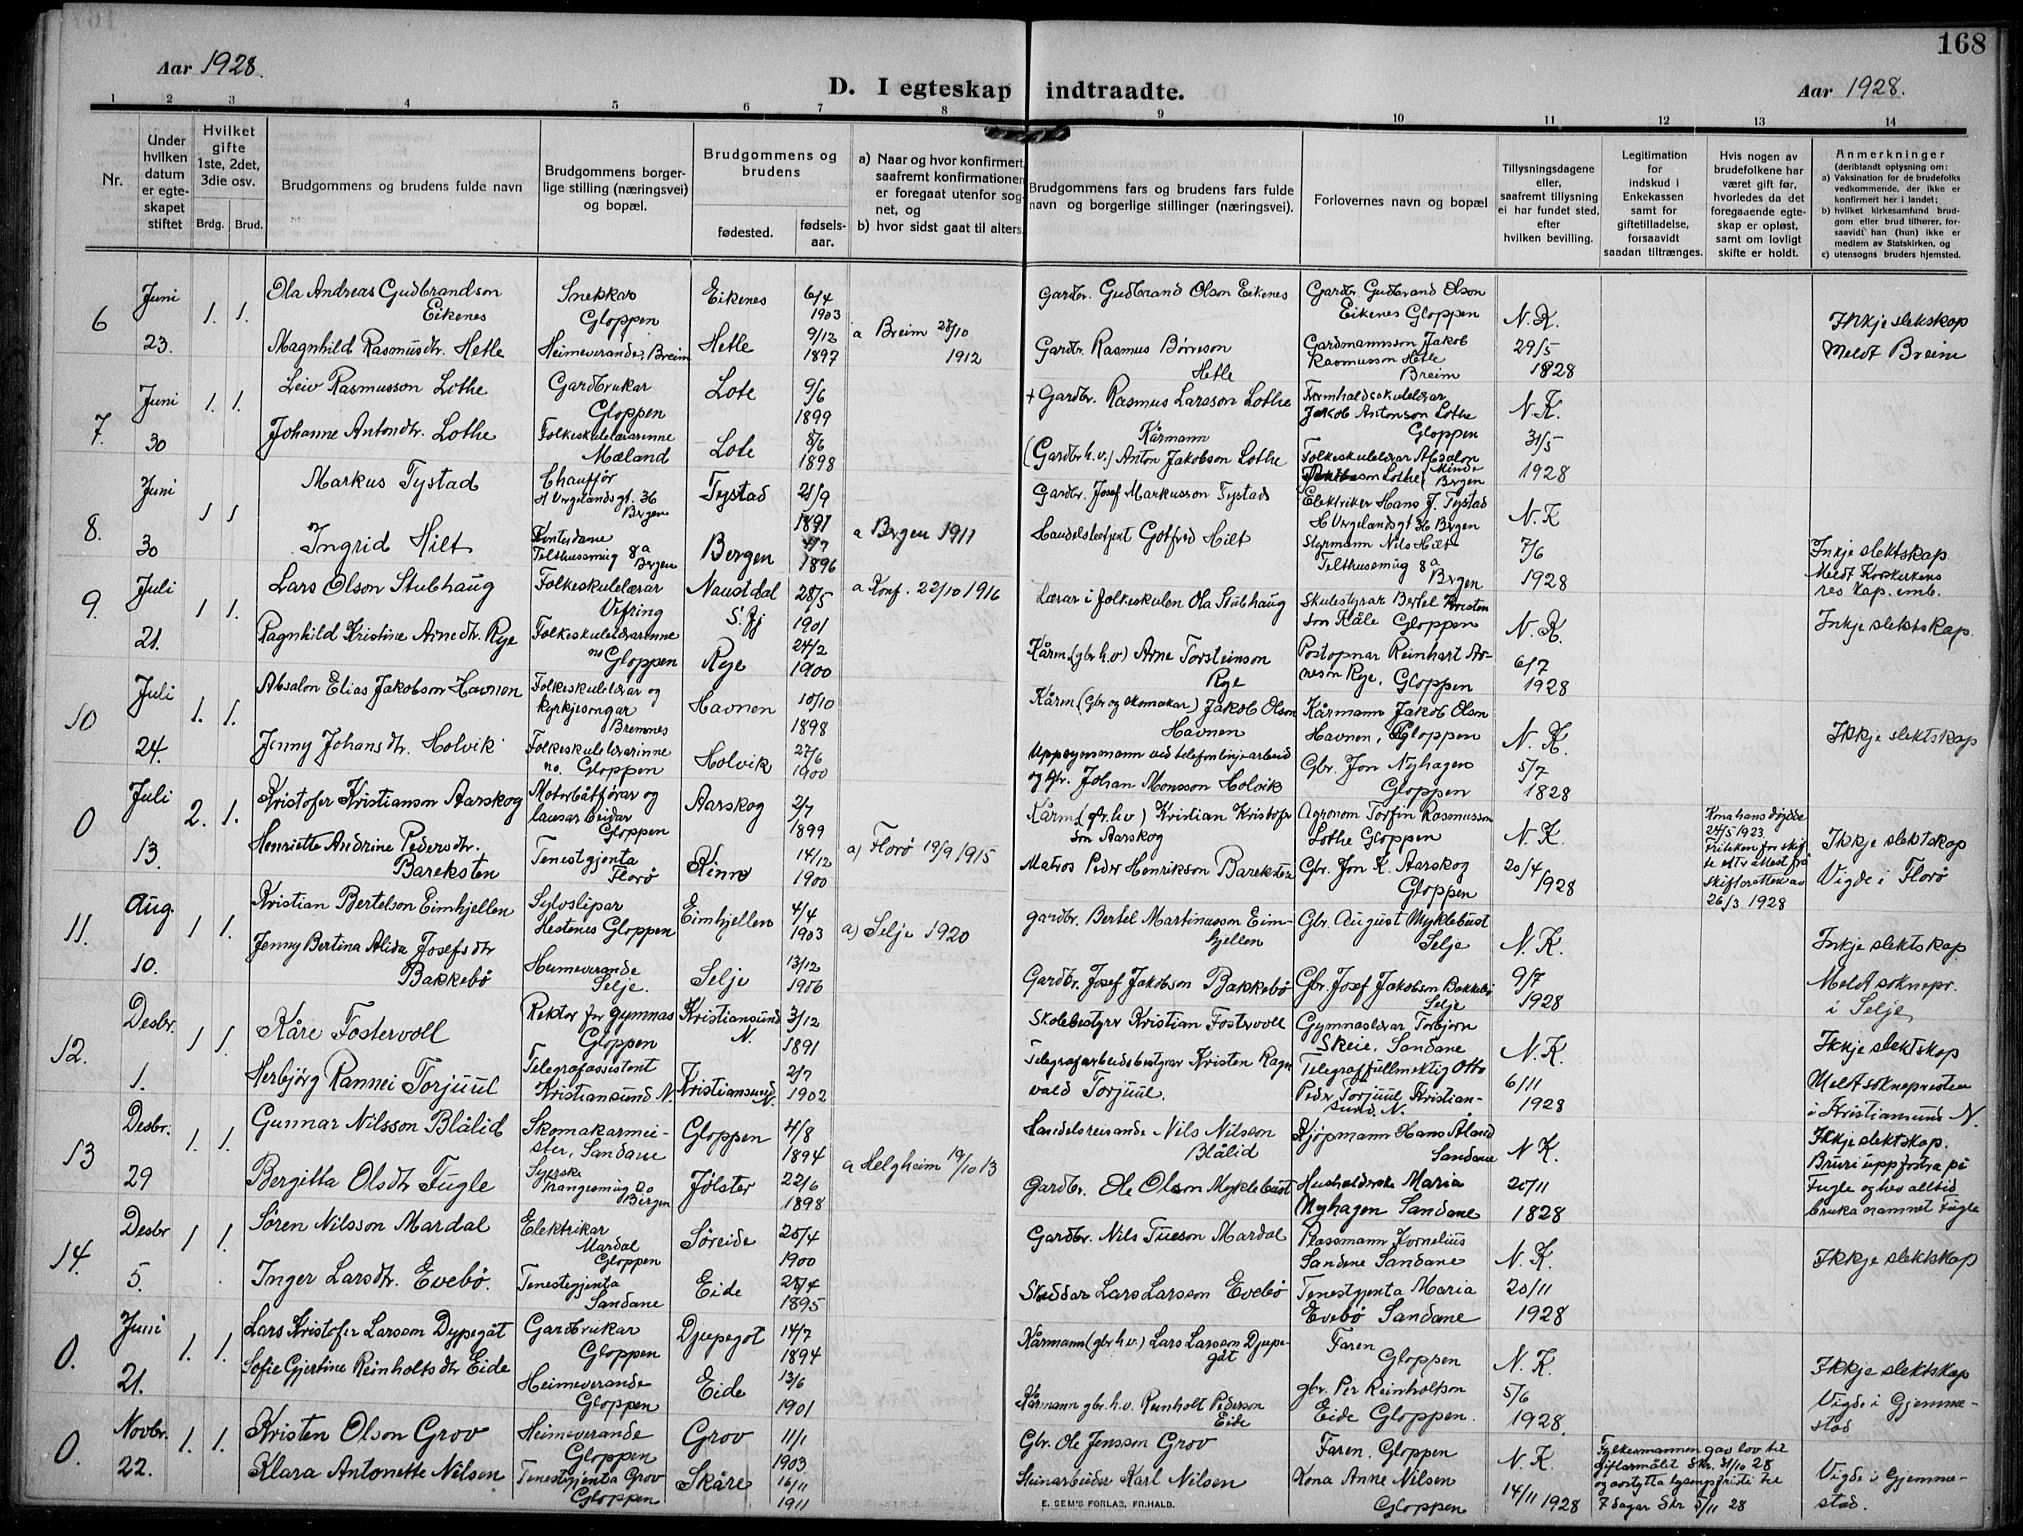 168
Aar 1928.
D. I egteskap indtraadte.
Aar 1928.
1 2 3 4 5 6 7 8 9 10 11 12 13 14
Nr.
Under hvilken datum er egteskapet stiftet
Hvilket gifte 1ste, 2det, 3die osv.
Brdg. Brud.
Brudgommens og brudens fulde navn
Brudgommens borgerlige stilling (næringsvei) og bopæl.
Brudgommens og brudens
fødested. fødselsaar.
a) Naar og hvor konfirmert, saafremt konfirmationen er foregaat utenfor sognet, og
b) hvor sidst gaat til alters.
Brudgommens fars og brudens fars fulde navn og borgerlige stillinger (næringsvei).
Forlovernes navn og bopæl
Tillysningsdagene eller, saafremt tillysning ei har fundet sted, efter hvilken bevilling.
Legitimation for indskud i Enkekassen samt for giftetilladelse, forsaavidt saadan tiltrænges.
Hvis nogen av brudefolkene har været gift før, hvorledes da det foregaaende egteskap er opløst, samt om lovligt skifte er holdt.
Anmerkninger
(deriblandt oplysning om:
a) Vaksination for de brudefolks vedkommende, der ikke er konfirmert her i landet;
b) hvilket kirkesamfund brudgom eller brud tilhører, forsaavidt han (hun) ikke er medlem av Statskirken, og
c) utensogns bruders hjemsted.
6 Juni 23. 1. 1.
Ola Andreas Gudbrandson Eikenes
Snekkar Gloppen
Eikenes 6/4 1903
Gardbr. Gudbrand Olson Eikenes
Gardbr. Gudbrand Olson Eikenes Gloppen
N. K. 29/5 1828
Ikkje slektskap
Meldt Breim
Magnhild Rasmusdtr. Hetle
Heimeverande, Breim
Hetle 9/12 1897
a Breim 28/10 1912
Gardbr. Rasmus Børreson Hetle
Gardmannsson Jakob Rasmusson Hetle Breim
7. Juni 30 1. 1.
Leiv Rasmusson Lothe
Gardbrukar Gloppen
Lote 9/6 1899
+ Gardbr. Rasmus Larsson Lothe
Framhaldsskulelærar Jakob Antonson Lothe Gloppen
N. K. 31/5 1928
Johanne Antondtr. Lothe
Folkeskulelærarinne Mæland
Lote 8/6 1898
Kårmann (Gardbr h.v.) Anton Jakobson Lothe
Folkeskulelærar Absalon Lothe, Minde Bergen
8. Juni 30 1 1
Markus Tystad
Chauffør H Vergelandsgt. 36 Bergen
Tystad 21/9 1891
Gardbr. Josef Markusson Tystad
Elektriker Hans J. Tystad H Vergelandsgt 36 Bergen
N. K 7/6 1928
Ingrid Hilt
Kontordame Telthussmug 8a Bergen
Bergen 4/7 1896
a Bergen 1911
Handelsbetjent Gotfred Hilt
Styrmann Nils Hilt Telthussmug 8a Bergen
Inkje slektskap
Meldt Korskirkens res kap. emb.
9. Juli 21. 1 1.
Lars Olson Stubhaug
Folkeskulelærar Vefring
Naustdal S.Fj 28/5 1901
a Konf. 22/10 1916
Lærar i folkeskulen Ola Stubhaug
Skulestyrar Bertel Kristenson Kåle Gloppen
N. K. 6/7 1928
Inkje slektskap.
Ragnhild Kristine Arnedtr. Rye
Folkeskulelærarinne no Gloppen
Rye 24/2 1900
Kårm (gbr h.v) Arne Torsteinson Rye
Postopnar Reinhart Arneson Rye, Gloppen
10 Juli 24. 1. 1.
Absalon Elias Jakobson Havnen
Folkeskulelærar og kyrkjesongar Bremnes
Havnen 10/10 1898
Kårm (Gbr og skomakar) Jakob Olson Havnen
Kårmann Jakob Olson Havnen, Gloppen
N. K. 5/7 1828
Ikkje slektskap
Jenny Johansdtr. Holvik
Folkeskulelærarinne no. Gloppen
Holvik 27/6 1900
Uppsynsmann ved telefonlinjearbeid og Gbr. Johan Monsson Holvik
Gbr. Jon Nyhagen Gloppen
0 Juli 13. 2. 1.
Kristofer Kristianson Aarskog
Motorbåtførar og lausarbeidar Gloppen
Aarskog 2/7 1899
Kårm (gbr. h.v) Kristian Kristoferson Aarskog
Agronom Torfin Rasmusson Lothe Gloppen
N. K. 20/4 1928
Kona hans døydde 24/5 1923. Friteken for skifte etter attest frå skifteretten av 26/3 1928
Ikkje slektskap
Vigde i Florø
Henriette Andrine Pedersdtr. Bareksten
Tenestgjenta Florø
Kinn 14/12 1900
a) Florø 19/9 1915
Matros Peder Henrikson Bareksten
Gbr. Jon K. Aarskog Gloppen
11. Aug. 10. 1 1.
Kristian Bertelson Eimhjellen
Sylvslipar Hestenes Gloppen
Eimhjellen 4/4 1903
gardbr. Bertel Martinusson Eimhjellen
Gbr. August Myklebust Selje
N. K. 9/7 1928
Inkje slektskap
Meldt soknepr. i Selje
Jenny Bertina Alida Josefsdtr Bakkebø
Heimeverande Selje.
Selje 13/12 1906
a) Selje 1920
Gardbr. Josef Jakobson Bakkebø
Gbr. Josef Jakobson Bakkebø Selje
12. Desbr. 1. 1 1.
Kåre Fostervoll
Rektor for gymnas Gloppen
Kristiansund N. 3/12 1891
Skolebestyrer Kristian Fostervoll
Gymnaslærar Torbjørn Skeie, Sandane
N. K. 6/11 1928
Ikkje slektskap
Meldt sokneprosten i Kristiansund N.
Herbjørg Rannei Torjuul
Telegrafassistent Kristiansund N.
Kristiansund N. 2/7 1902
Telegrafarbeidsbestyrar Kristen Ragnvald Torjuul.
Telegraffullmektig Otto Peder Torjuul Kristiansund. N.
13 Desbr. 29 1. 1.
Gunnar Nilsson Blålid
Skomakarmeister, Sandane
Gloppen 4/8 1894
Handelsreisande Nils Nilsson Blålid
Kjøpmann Hans Åland Sandane
N K. 20/11 1828
Ikkje slektskap.
Bruri uppfostra på Fugle og hev alltid bruka namnet Fugle
Bergitta Olsdtr Fugle
Syerske Krangesmug 20 Bergen
Jølster 22/6 1898
a Helgheim 19/10 13
Gardbr. Ole Olson Myklebust
Husholderske Maria Nyhagen Sandane
14. Desbr 5. 1 1.
Søren Nilsson Mardal
Elektrikar Mardal Gloppen
Søreide 25/4 1900
Gardbr. Nils Tueson Mardal
Plassmann Kornelius Sandene Sandane
N. K. 20/11 1928
Ikkje slektskap
Inger Larsdtr. Evebø.
Tenestegjenta Sandane
Eide 28/4 1895
Skreddar Lars Larsson Evebø
Tenestgjenta Maria Evebø Sandane
0. Juni 21. 1. 1.
Lars Kristofer Larsson Dypegåt
Gardbrukar Gloppen
Djupegot 14/7 1894
Kårmann (gbr h.v.) Lars Larsson Djupegåt
Faren Gloppen
N. K. 5/6 1928.
Ikkje slektskap
Vigde i Gjemmestad
Sofie Gjertine Reinholtsdtr Eide
Heimeverande Gloppen
Eide 13/6 1901
Kårmann gbr. h.v. Reinholt Pederson Eide
gbr. Per Reinholtson Eide Gloppen.
0. Novbr. 22. 1. 1.
Kristen Olson Grov
Heimeverande Gloppen
Grov 11/1 1903
Gbr. Ole Jensson Grov
Faren. Gloppen
N. K. 14/11 1928
Fylkesmannen gav lov til giftarmålit Skr. 31/10 28 og avstytta lysingsfristi til 7 dagar Skr 5/11 28
Vigde i Gjemmestad.
Klara Antonette Nilsen
Tenestgjenta Grov Gloppen
Skåre 16/11 1911
Steinarbeider Karl Nilsen
Kona Anne Nilsen Gloppen
E. SEM'S FORLAG, FR.HALD.